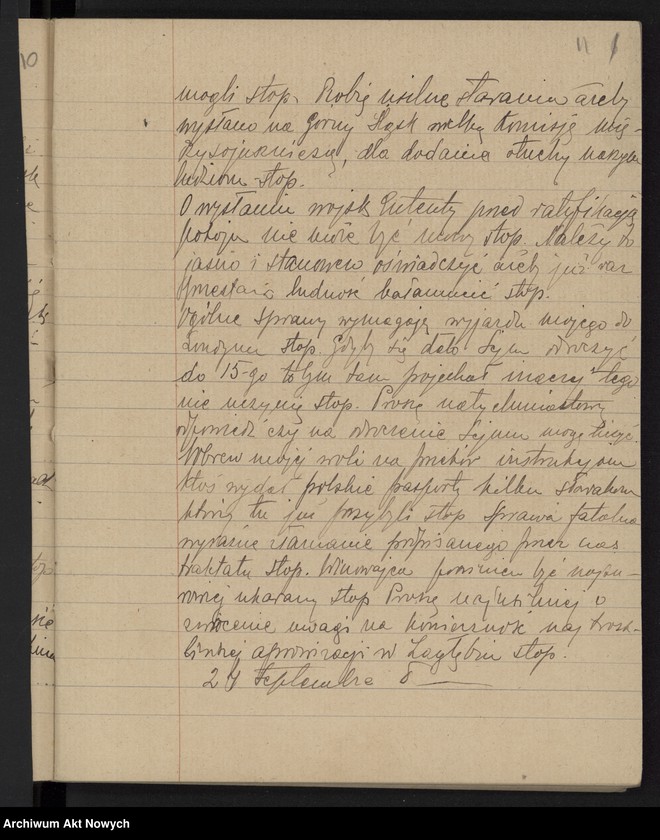 11 1
10
mogli stop. Robię usilne starania ażeby
wysłano na Górny Śląsk wielką komisję mię-
dzysojuszniczą, dla dodania otuchy naszym
ludziom stop.
O wysłaniu wojsk Ententy przed ratyfikacją
pokoju nie może być mowy stop. Należy to
jasno i stanowczo oświadczyć ażeby już raz
ludność bałamucić stop.
Ogólne sprawy wymagają wyjazdu mojego do
Londynu stop. Gdyby się dało Sejm odroczyć
do 15-go to bym tam pojechał inaczej tego
nie uczynię stop. Proszę natychmiastowy
odpowiedź czy na odroczenie Sejmu mogę liczyć.
Wbrew mojej woli na przekór instrukcjom
ktoś wydał polskie paszporty kilku Słowakom
którzy tu już przybyli stop sprawa fatalna
wyraźne złamanie podpisanego przez nas
traktatu stop. Winowajca powinien być najsu-
rowiej ukarany stop Proszę najusilniej o
zwrócenie uwagi na konieczność naj trosk-
liwszej aprowizacji w Zagłębiu stop.
24 Septembre
Archiwum Akt Nowych